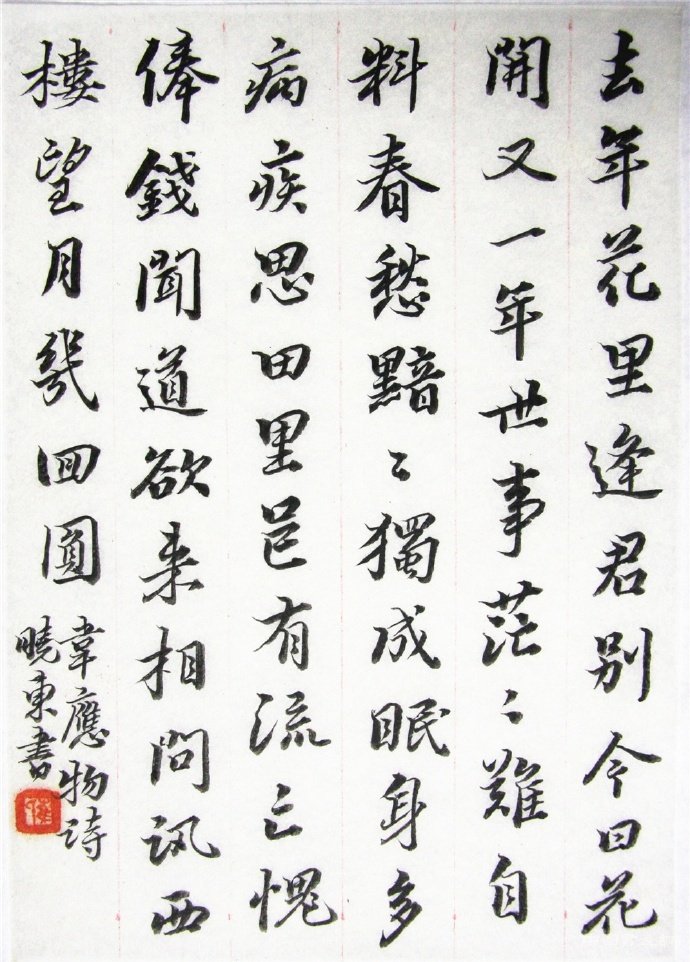 去年花里逢君别今日花
開又一年世事茫〻難自
料春愁黯〻獨成眠身多
病疾思田里邑有流亡愧
俸錢聞道欲来相問訊西
樓望月幾回圓
韋應物詩
曉東書